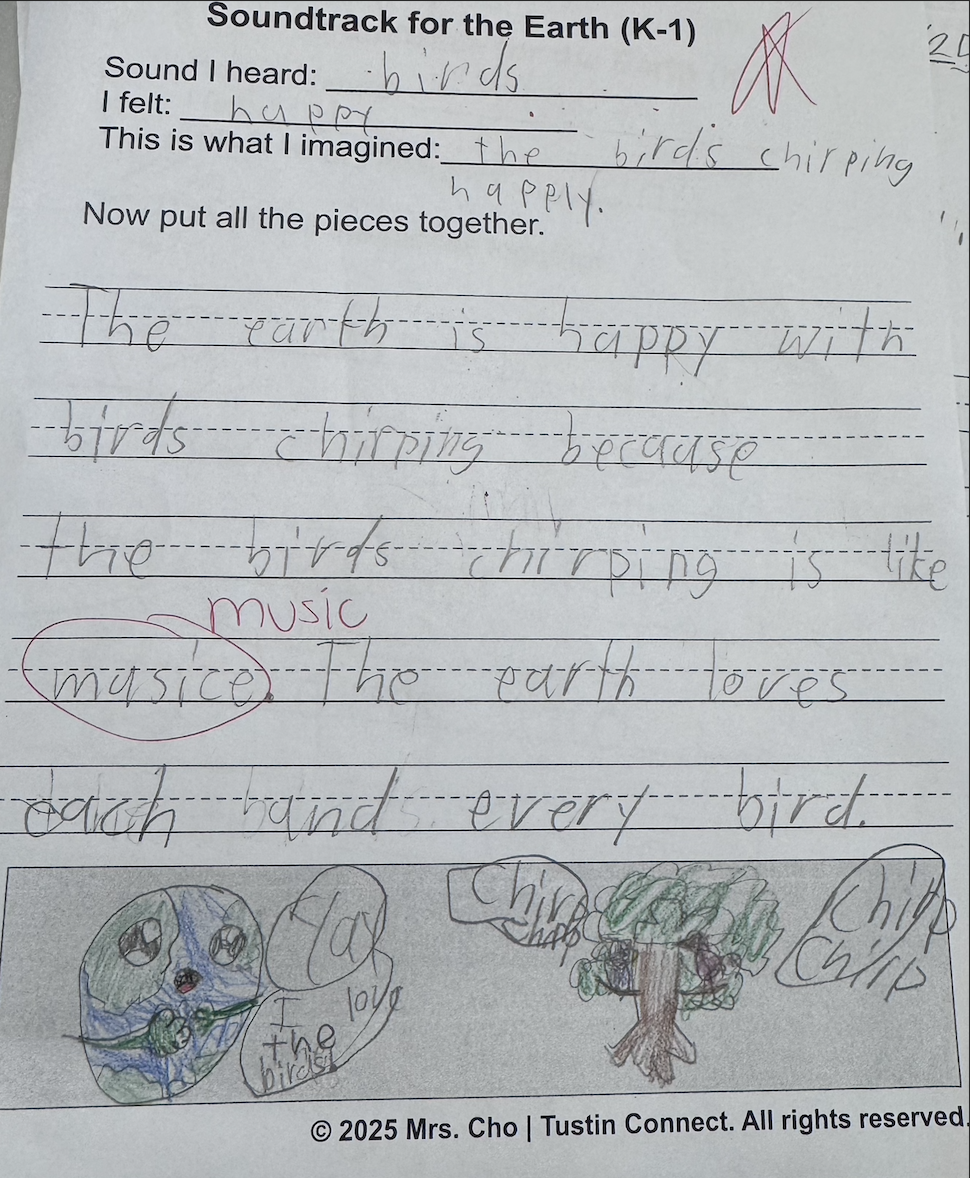 Soundtrack for the Earth (K-1)
Sound I heard: birds
I felt: happy
This is what I imagined: the birds chirping
happly.
Now put all the pieces together.
The earth is happy with
birds chirping because
the birds chirping is like
music
musice. The earth loves
each and every bird.
Yay
I love
the
birds!
Chirp
Chirp
Chirp
Chirp
© 2025 Mrs. Cho | Tustin Connect. All rights reserved.